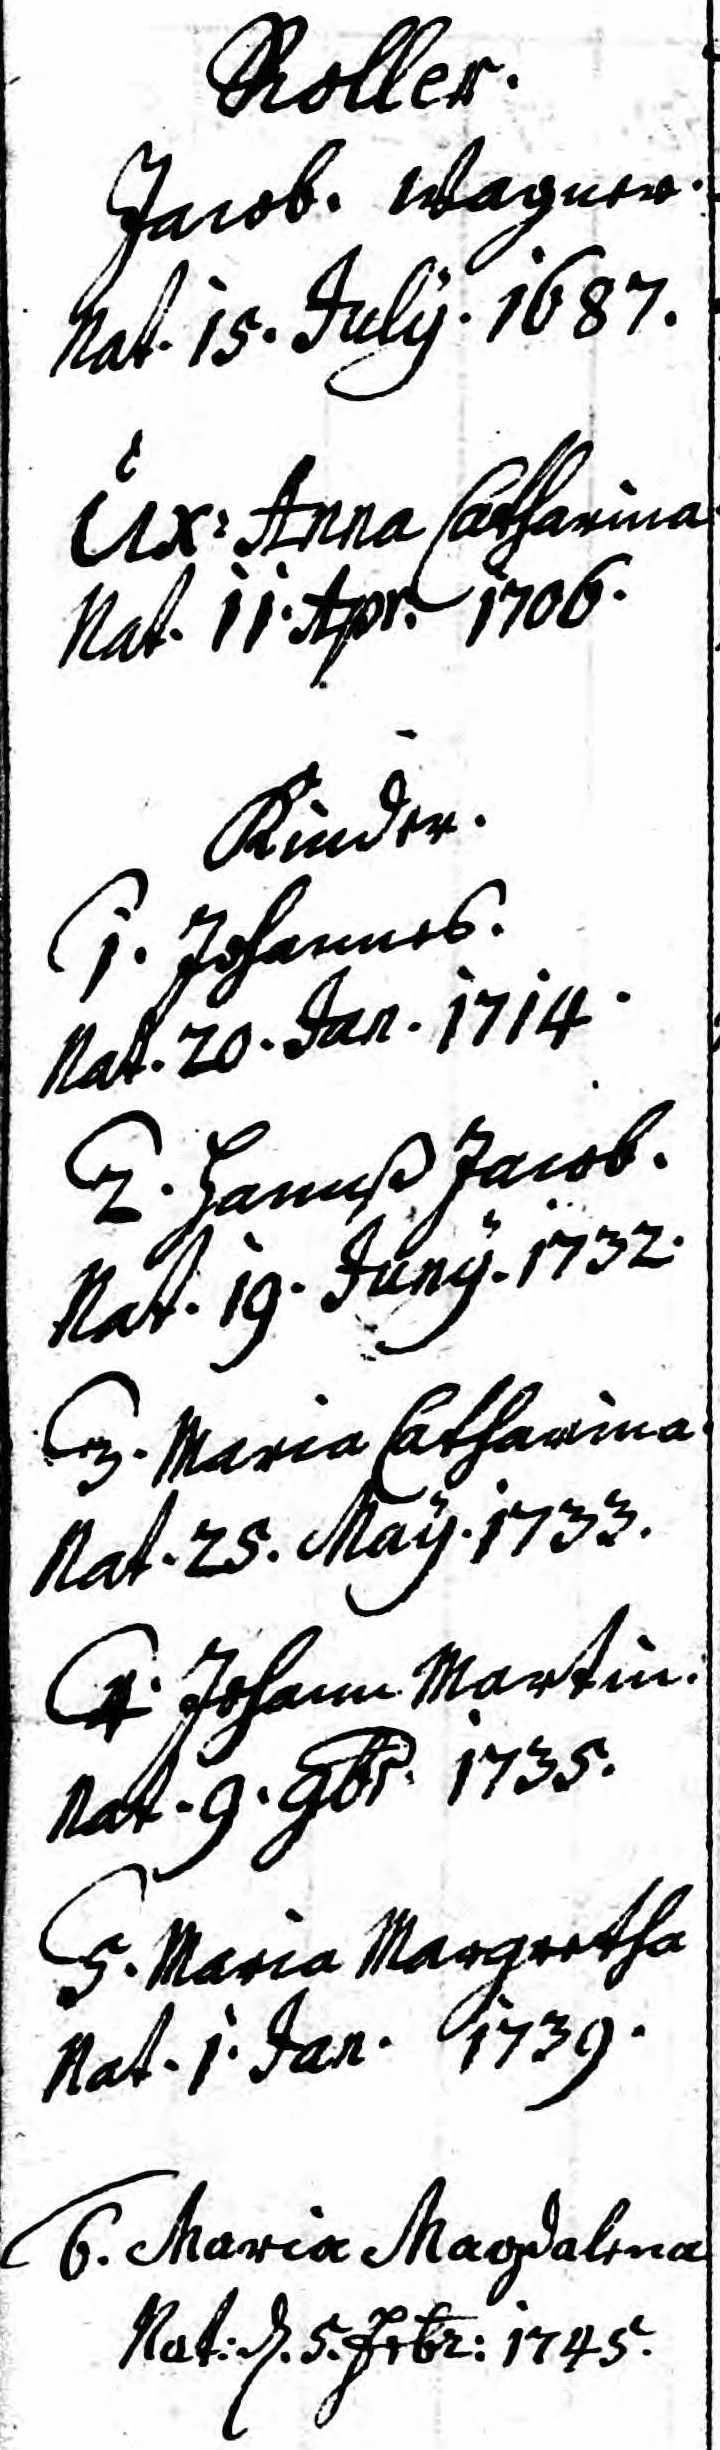 Roller.
Jacob. Wagner.
Nat. 15. Julÿ. 1687.
Ux: Anna Catharina
Nat. 11. Apr. 1706.
Kinder.
1. Johannes.
Nat. 20. Jan. 1714.
2. Hannß Jacob.
Nat. 19. Junÿ. 1732.
3. Maria Catharina.
Nat. 25. Maÿ. 1733.
4. Johann Martin.
Nat. 9. 9br. 1735.
5. Maria Margretha
Nat. 1. Jan. 1739.
6. Maria Magdalena
Nat: d. 5. Febr: 1745.